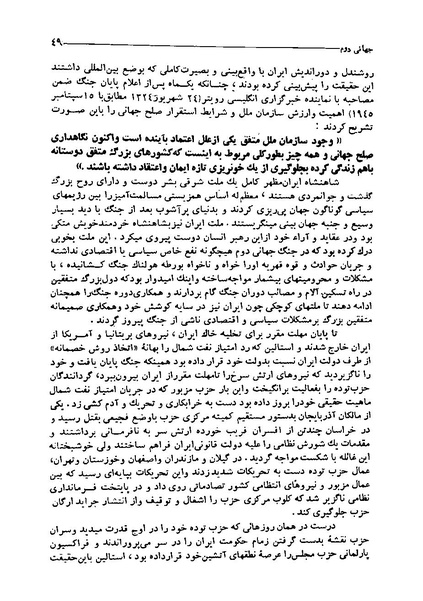 جهانی دوم ۴۹
روشندل و دوراندیش ایران با واقع‌بینی و بصیرت‌کاملی که بوضع بین‌المللی داشتند
این حقیقت را پیش‌بینی کرده بودند، چنانکه یکماه پس‌از اعلام پایان جنگ ضمن
مصاحبه با نماینده خبرگزاری انگلیسی رویتر (۲۴ شهریور ۱۳۲۴ مطابق با ۱۵ سپتامبر
۱۹۴۵) اهمیت وارزش سازمان ملل و شرایط استقرار صلح جهانی را باین صورت
تشریح کردند :
« وجود سازمان ملل متفق یکی ازعلل اعتماد بآینده است واکنون نگاهداری
صلح جهانی و همه چیز بطورکلی مربوط به اینست که‌کشورهای بزرگ متفق دوستانه
باهم زندگی کرده بجلوگیری از یک خونریزی تازه ایمان واعتقاد داشته باشند . »
شاهنشاه ایران‌مظهر کامل یك ملت شرقی بشر دوست و دارای روح بزرگ
گذشت و جوانمردی هستند ، معظم‌له اساس همزیستی مسالمت‌آمیزرا بین رژیمهای
سیاسی گوناگون جهان پی‌ریزی کردند و بدنیای پرآشوب بعد از جنگ با دید بسیار
وسیع و جنبه جهان بینی مینگریستند . ملت ایران نیزبشاهنشاه خردمندخویش متکی
بود ودر عقاید و آراء خود ازاین رهبر انسان دوست پیروی میکرد . این ملت بخوبی
درك کرده بود که در جنگ جهانی دوم هیچگونه نفع خاص سیاسی یا اقتصادی نداشته
و جریان حوادث و قوه قهریه اورا خواه و ناخواه بورطه هولناك جنگ کشانیده ، با
مشکلات و محرومیتهای بیشمار مواجه‌ساخته واینك امیدوار بودکه دول‌بزرگ متفقین
در راه تسکین آلام و مصائب دوران جنگ گام بردارند و همکاری‌دوره جنگ‌را همچنان
ادامه دهند تا ملتهای کوچکی چون ایران نیز در سایه کوشش خود وهمکاری صمیمانه
متفقین بزرگ برمشکلات سیاسی و اقتصادی ناشی از جنگ پیروز گردند .
تا پایان مهلت مقرر برای تخلیه خاك ایران ، نیروهای بریتانیا و آمریکا از
ایران خارج شدند و استالین که رد امتیاز نفت شمال را بهانهٔ «اتخاذ روش خصمانه»
از طرف دولت ایران نسبت بدولت خود قرار داده بود همینکه جنگ پایان یافت و خود
را ناگزیردید که نیروهای ارتش سرخ‌را تامهلت مقرراز ایران بیرون‌ببرد، گردانندگان
حزب‌توده را بفعالیت برانگیخت واین بار حزب مزبور که در جریان امتیاز نفت شمال
ماهیت حقیقی خودرا بروز داده بود دست به خرابکاری و تحریك و آدم کشی زد . یکی
از مالکان آذربایجان بدستور مستقیم کمیته مرکزی حزب باوضع فجیعی بقتل رسید و
در خراسان چندتن از افسران فریب خورده ارتش سر به نافرمانی برداشتند و
مقدمات یك شورش نظامی را علیه دولت قانونی‌ایران فراهم ساختند ولی خوشبختانه
این غائله با شکست مواجه گردید . در گیلان و مازندران واصفهان وخوزستان وتهران،
عمال حزب توده دست به تحریکات شدیدزدند واین تحریکات بپایه‌ای رسید که بین
عمال مزبور و نیروهای انتظامی کشور تصادماتی روی داد و در پایتخت فرمانداری
نظامی ناگزیر شد که کلوب مرکزی حزب را اشغال و توقیف وازانتشار جراید ارگان
حزب جلوگیری کند .
درست در همان روزهائی که حزب توده خود را در اوج قدرت میدید وسران
حزب نقشهٔ بدست گرفتن زمام حکومت ایران را در سر می‌پروراندند و فراکسیون
پارلمانی حزب مجلس‌را عرصهٔ نطقهای آتشین‌خود قرارداده بود ، استالین باین‌حقیقت